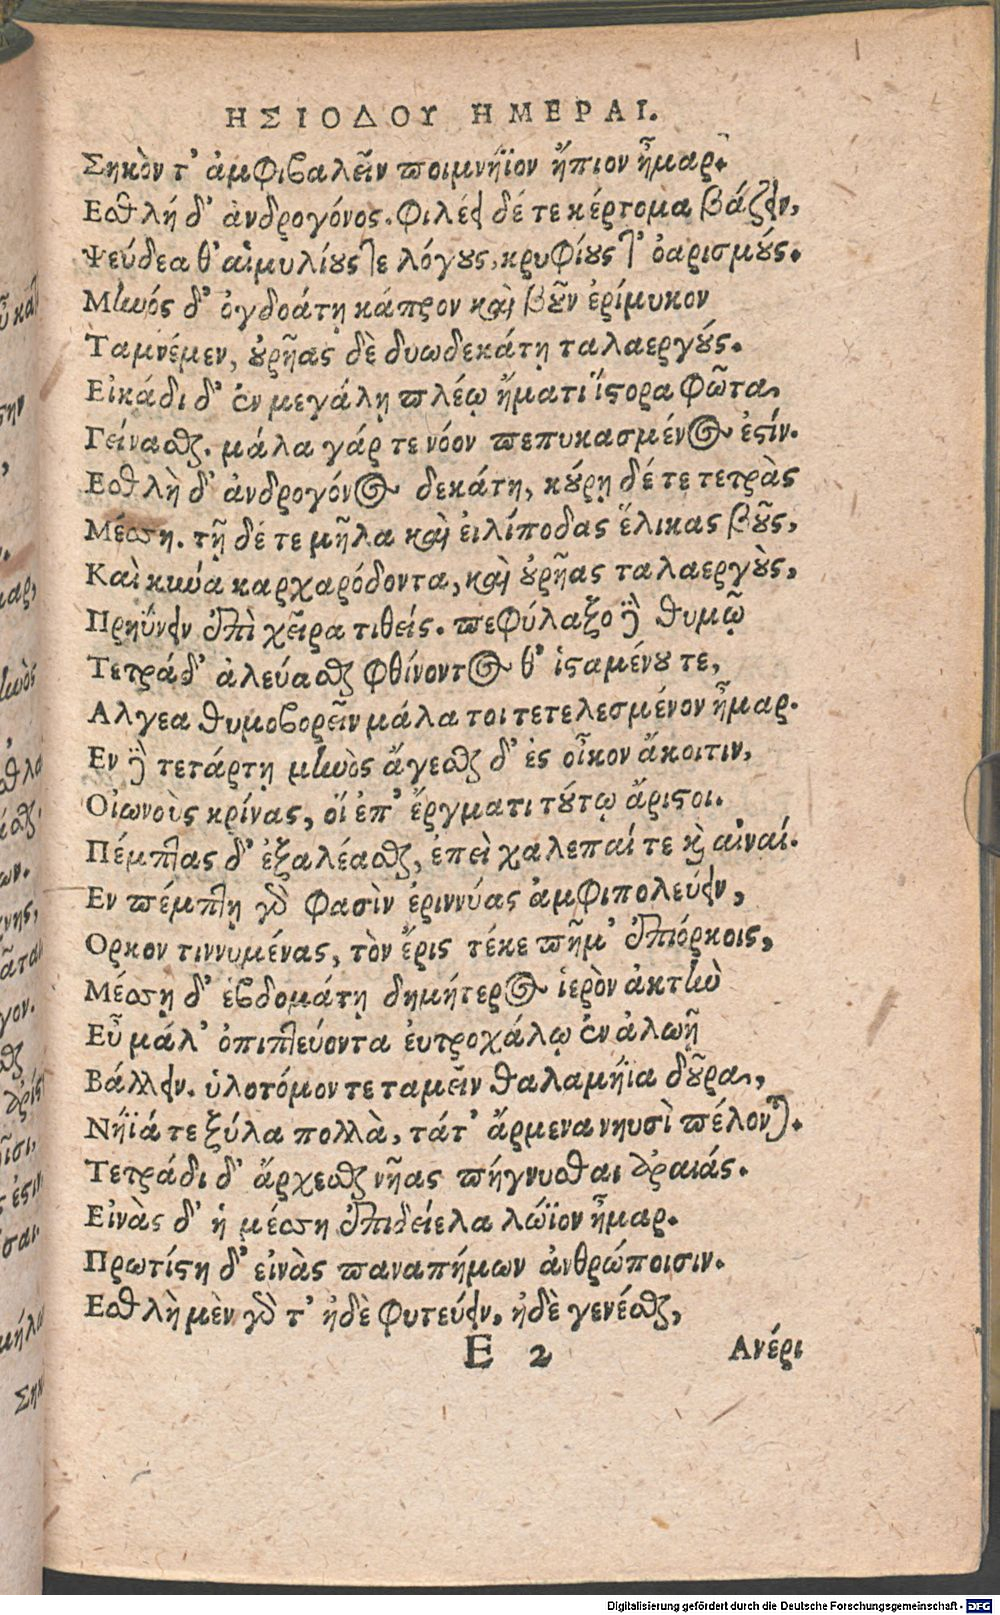 ΗΣΙΟΔΟΥ ΗΜΕΡΑΙ.
Σηκὸν τ’ ἀμφιβαλεῖν ποιμνήϊον ἤπιον ἦμαρ.
Εσθλή δ’ ἀνδρογόνος. φιλέει δέ τε κέρτομα βάζειν,
Ψεύδεα θ’ αἱμυλίους τε λόγους, κρυφίους τ’ ὀαρισμούς.
Μηνός δ’ ὀγδοάτῃ κάπρον καὶ βοῦν ἐρίμυκον
Ταμνέμεν, οὐρῆας δὲ δυωδεκάτῃ ταλαεργούς.
Εἰκάδι δ’ ἐν μεγάλῃ πλέῳ ἤματι ἵστορα φῶτα
Γείνασθαι. μάλα γάρ τε νόον πεπυκασμένος ἐστίν.
Εσθλὴ δ’ ἀνδρογόνος δεκάτη, κούρῃ δέ τε τετρὰς
Μέσση. τῇ δέ τε μῆλα καὶ εἰλίποδας ἕλικας βοῦς,
Καὶ κύνα καρχαρόδοντα, καὶ οὐρῆας ταλαεργοὺς,
Πρηΰνειν ἐπὶ χεῖρα τιθείς. πεφύλαξο δὲ θυμῷ
Τετράδ’ ἀλεύασθαι φθίνοντος θ’ ἱσταμένου τε,
Αλγεα θυμοβορεῖν μάλα τοι τετελεσμένον ἦμαρ.
Εν δὲ τετάρτῃ μηνὸς ἄγεσθαι δ’ ἐς οἶκον ἄκοιτιν,
Οἰωνοὺς κρίνας, οἵ ἐπ’ ἔργματι τούτῳ ἄριστοι.
Πέμπτας δ’ ἐξαλέασθαι, ἐπεὶ χαλεπαί τε καὶ αἰναί.
Εν πέμπτῃ γὰρ φασὶν ἐριννύας ἀμφιπολεύειν,
Ορκον τιννυμένας, τὸν ἔρις τέκε πῆμ’ ἐπιόρκοις,
Μέσσῃ δ’ ἑβδομάτῃ δημήτερος ἱερὸν ἀκτὴν
Εὖ μάλ’ ὀπιπτεύοντα ἐυτροχάλῳ ἐν ἀλωῇ
Βάλλειν. ὑλοτόμον τε ταμεῖν θαλαμήϊα δοῦρα,
Νήϊά τε ξύλα πολλὰ, τάτ’ ἄρμενα νηυσὶ πέλονται.
Τετράδι δ’ ἄρχεσθαι νῆας πήγνυσθαι ἀραιάς.
Εἰνὰς δ’ ἡ μέσση ἐπιδείελα λώϊον ἦμαρ.
Πρωτίστη δ’ εἰνὰς παναπήμων ἀνθρώποισιν.
Εσθλὴ μὲν γὰρ τ’ ἠδὲ φυτεύειν. ἠδὲ γενέσθαι,
E 2 Ανέρι
Digitalisierung gefördert durch die Deutsche Forschungsgemeinschaft - DFG